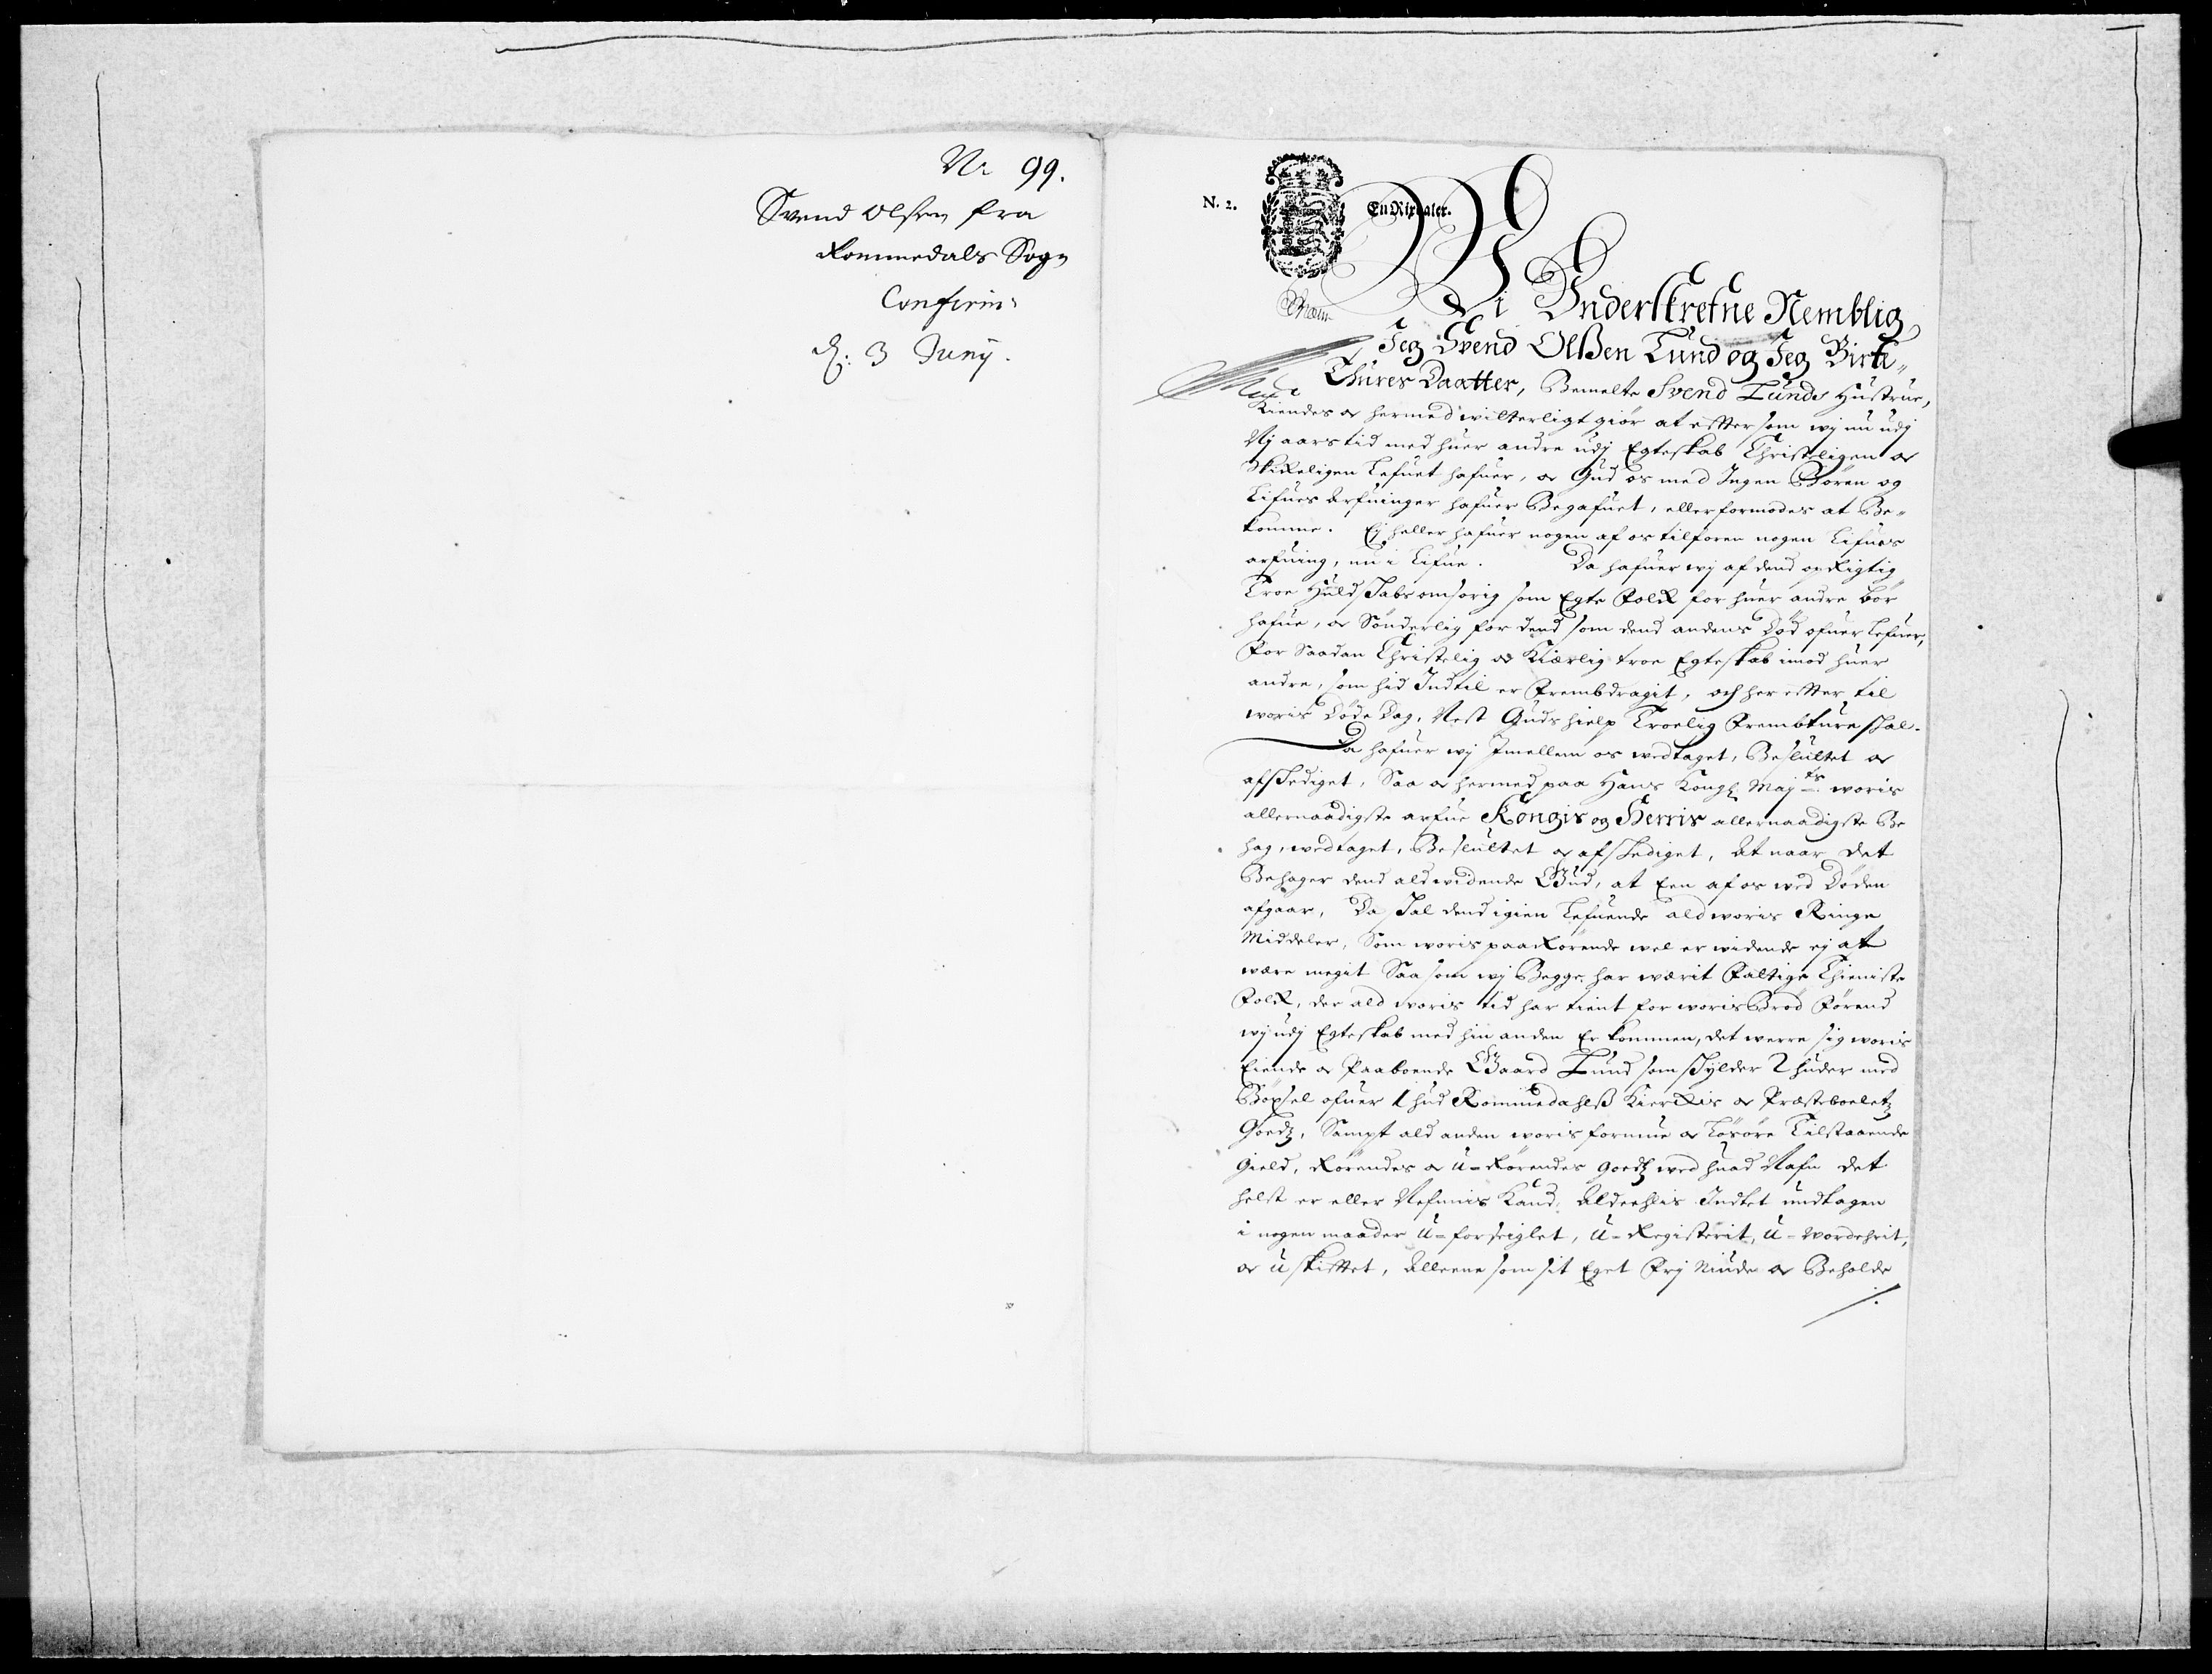 Nr 99.
Svend Olsen fra
Rommedals Sogn
Confirm:
d: 3 Junij.
N. 2.
En Rixdaler.
Wi Underskrefne Nemblig
Jeg Svend Olßen Lund og Jeg Birte
Thures Daatter, Bemelte Svend Lunds Hustrue,
Kiendes og hermed witterligt giør at effter som wj nu udj
Nj aars tid med huer andre udj Egteskab Christeligen og
Skikeligen Lefuet hafuer, og Gud os med Ingen Børen og
Lifues Arfuinger hafuer Begafuet, eller formodes at Be-
komme. Ej heller hafuer nogen af os tilforen nogen Lifues
arfuing, nu i Lifue. Da hafuer wj af dend opRigtig
Troe Huldskabs omsorig som Egte Folck for huer andre bør
hafue, og Sønderlig for dend som dend andens Død ofuer Lefuer,
For Saadan Christelig og Kiærlig troe Egteskab imod huer
andre, som hid Indtil er Frembdragit, och her effter til
woris Døde Dag, Nest Guds hielp Troelig Frembture skal.
Da hafuer wj Jmellem os wedtaget, Besluttet og
afskediget, Saa og hermed paa Hans Kongl. Maj:ts woris
allernaadigste arfue Kongis og Herris allernaadigste Be
hag, wedtaget, Besluttet og afskediget, At naar det
Behager dend ald widende Gud, at Een af os wed Døden
afgaar, Da skal dend igien Lefuende ald woris Ringe
Middeler, Som woris paarørende wel er widende ej at
være megit Saa som wj Begge har wærit Fattige Thieniste
Folck, der ald woris tid har tient for woris Brød Førend
wj udj Egteskab med hin anden Er kommen, det werre sig woris
Eiende og Paaboende Gaard Lund som skylder 2 huder med
Bøxsel ofuer 1 hud Rommedahlß Kierckis og Præsteboeletz
Goedtz, Sampt ald anden woris formue og Løsøre Tilstaaende
Gield, Rørendes og U-Rørendes Goedtz wed huad Nafn det
helst er eller Nefnnis Kand, Aldeehlis Indtet undtagen
i nogen maader U-forseiglet, U-Registerit, U-Wordehrit,
og U skifftet, Alleene som sit Eget Frj Niude og Beholde